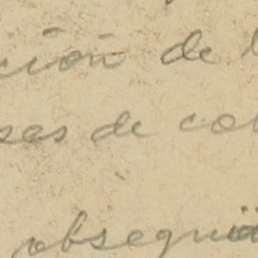 ción de l
ses de col
obsequi